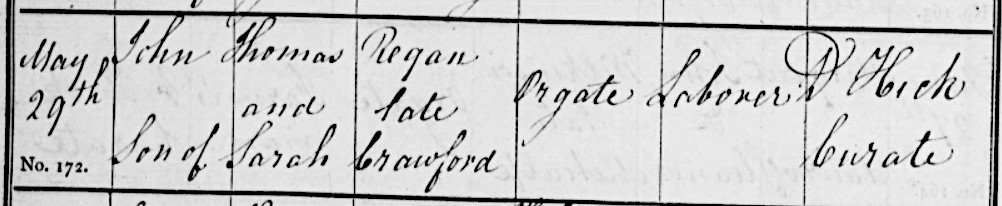 May 29th No. 172.
John Son of
Thomas and Sarah
Regan late Crawford
Orgate
Laborer
D Hick Curate